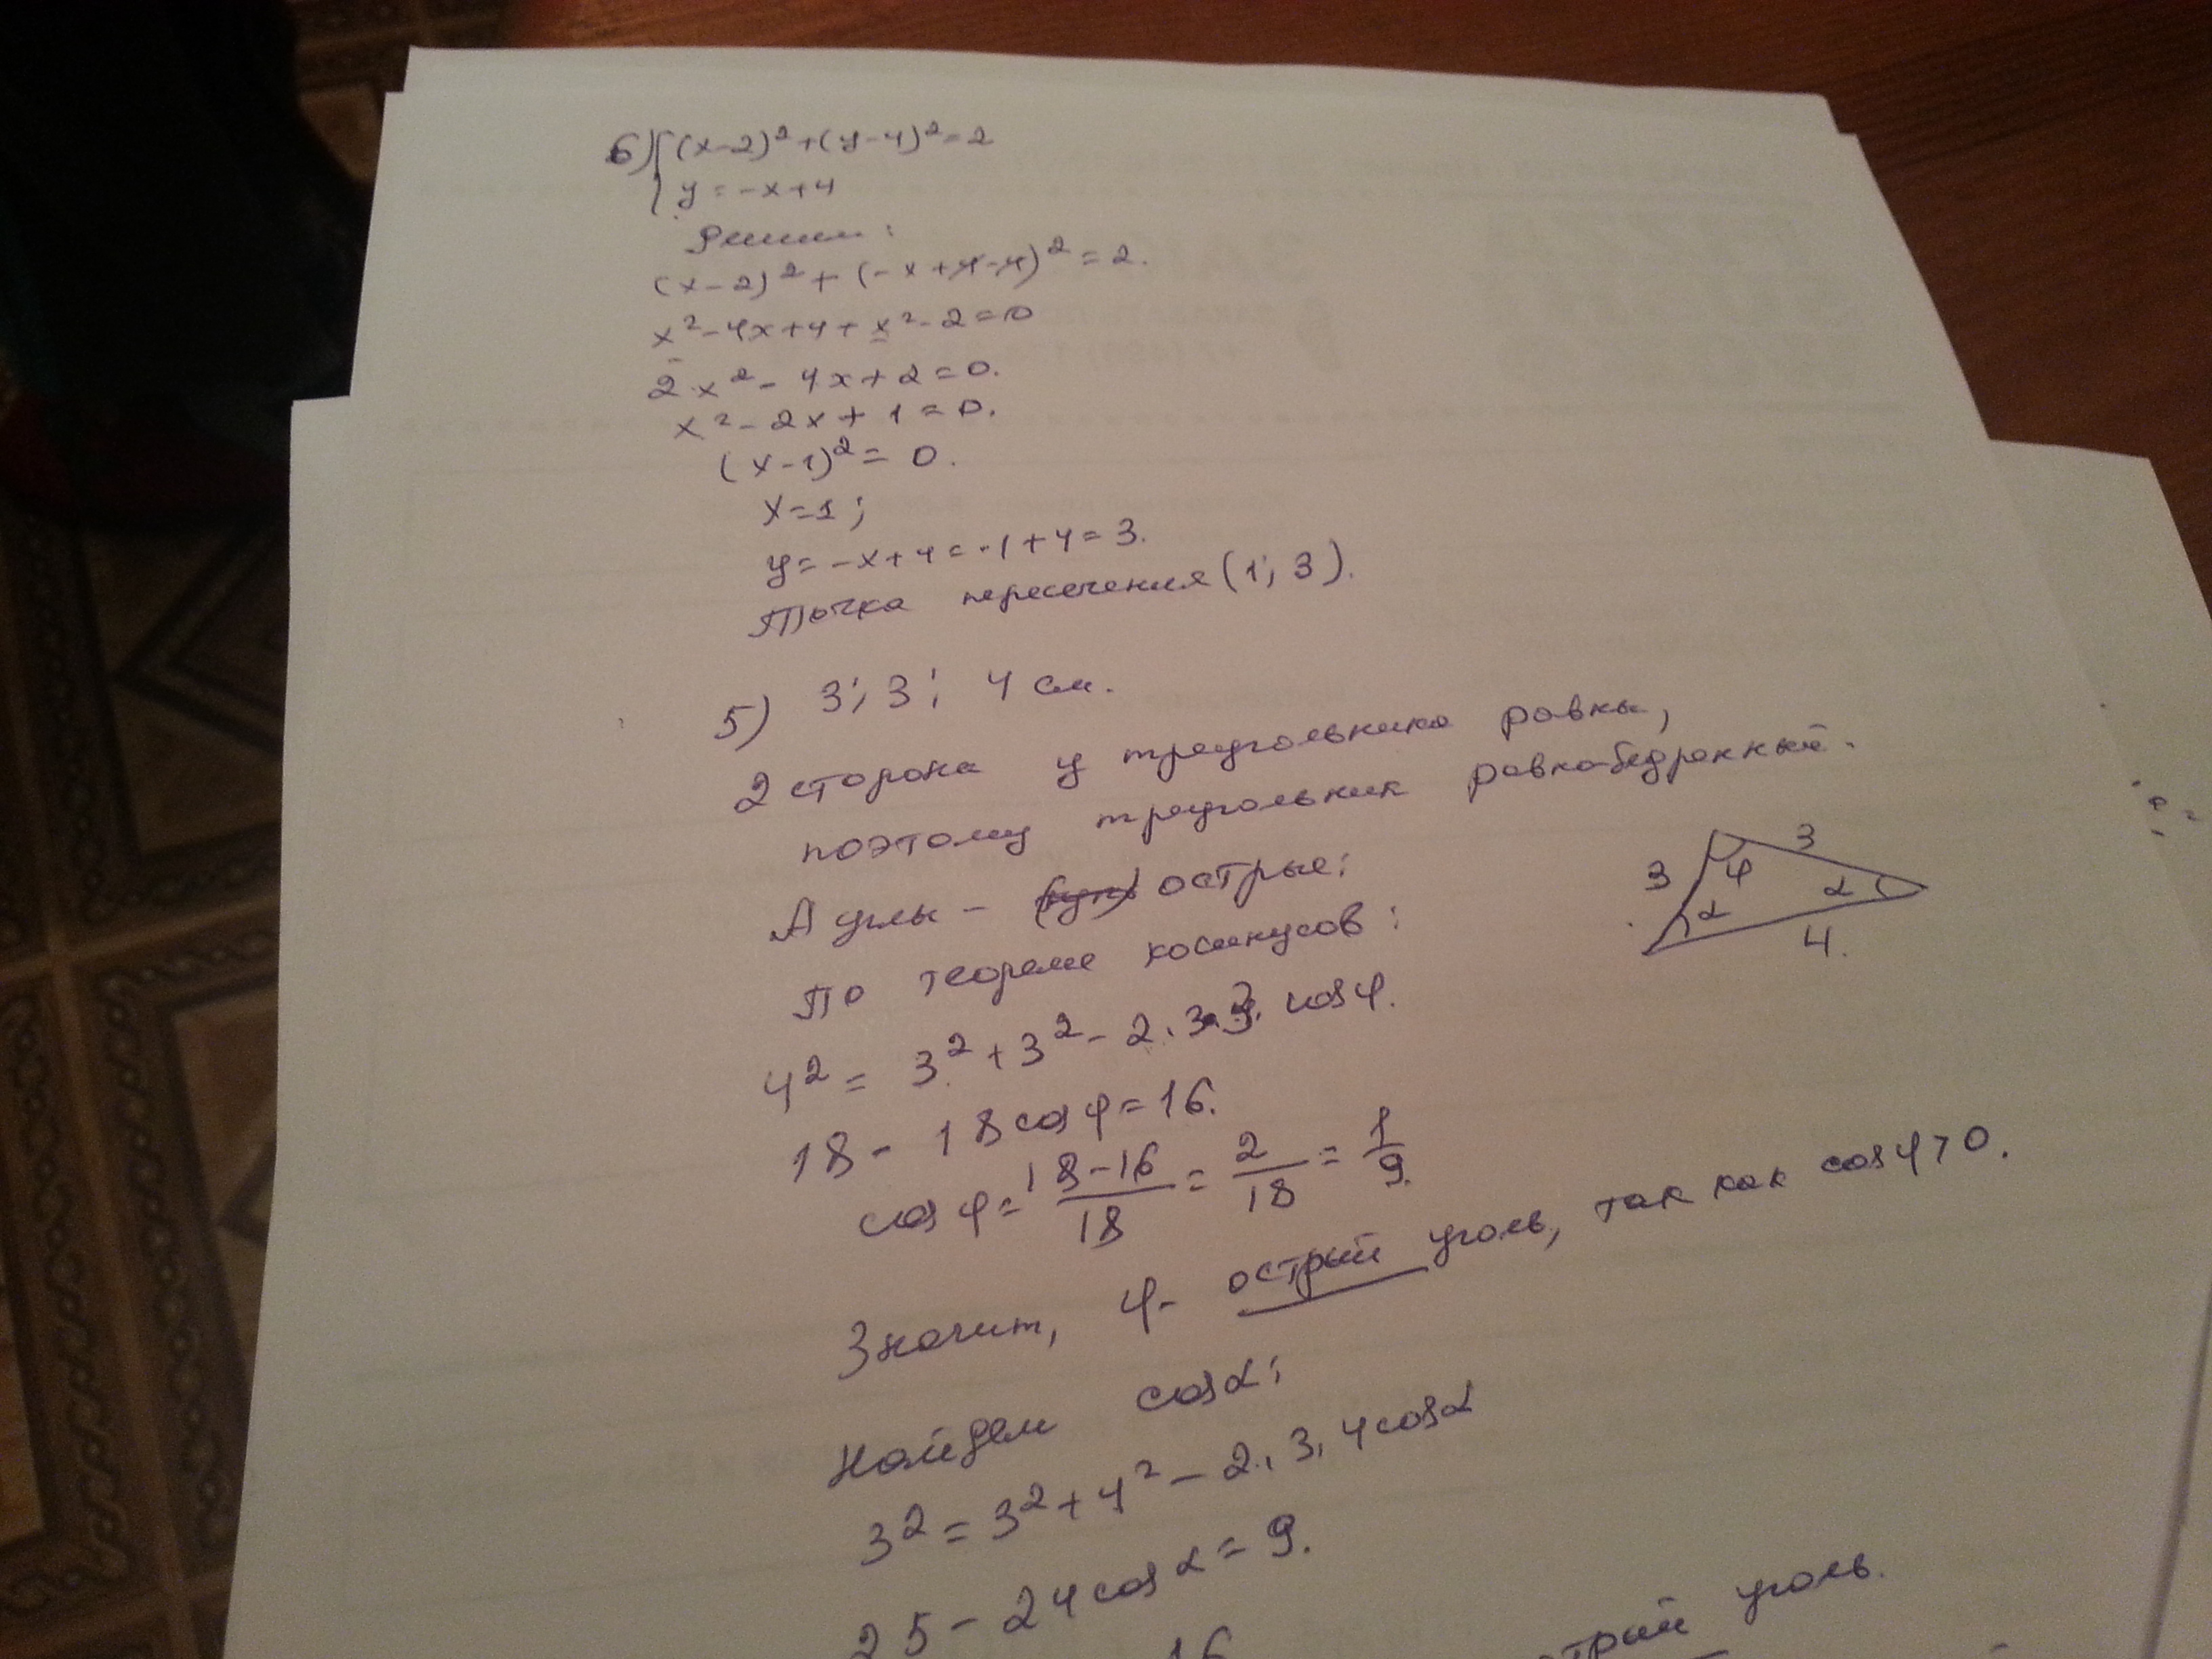 6) { (x-2)² + (y-4)² = 2
y = -x+4
Решим:
(x-2)² + (-x+4-4)² = 2.
x² - 4x + 4 + x² - 2 = 0
2x² - 4x + 2 = 0.
x² - 2x + 1 = 0.
(x-1)² = 0.
x = 1;
y = -x+4 = -1+4 = 3.
Точка пересечения (1; 3).
5) 3; 3; 4 см.
2 стороны у треугольника равны,
поэтому треугольник равнобедренный.
А углы - острые:
По теореме косинусов:
3 3 φ α α 4.
4² = 3² + 3² - 2·3·3·cosφ.
18 - 18cosφ = 16.
cosφ = (18-16)/18 = 2/18 = 1/9.
Значит, φ - острый уголь, так как cosφ>0.
Найдем cosα:
3² = 3² + 4² - 2·3·4cosα
25 - 24cosα = 9.
16
уголь.